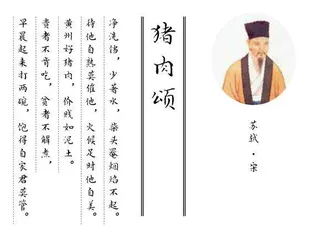 苏轼·宋
猪肉颂
净洗铛，少著水，柴头罨烟焰不起。
待他自熟莫催他，火候足时他自美。
黄州好猪肉，价贱如泥土。
贵者不肯吃，贫者不解煮，
早晨起来打两碗，饱得自家君莫管。